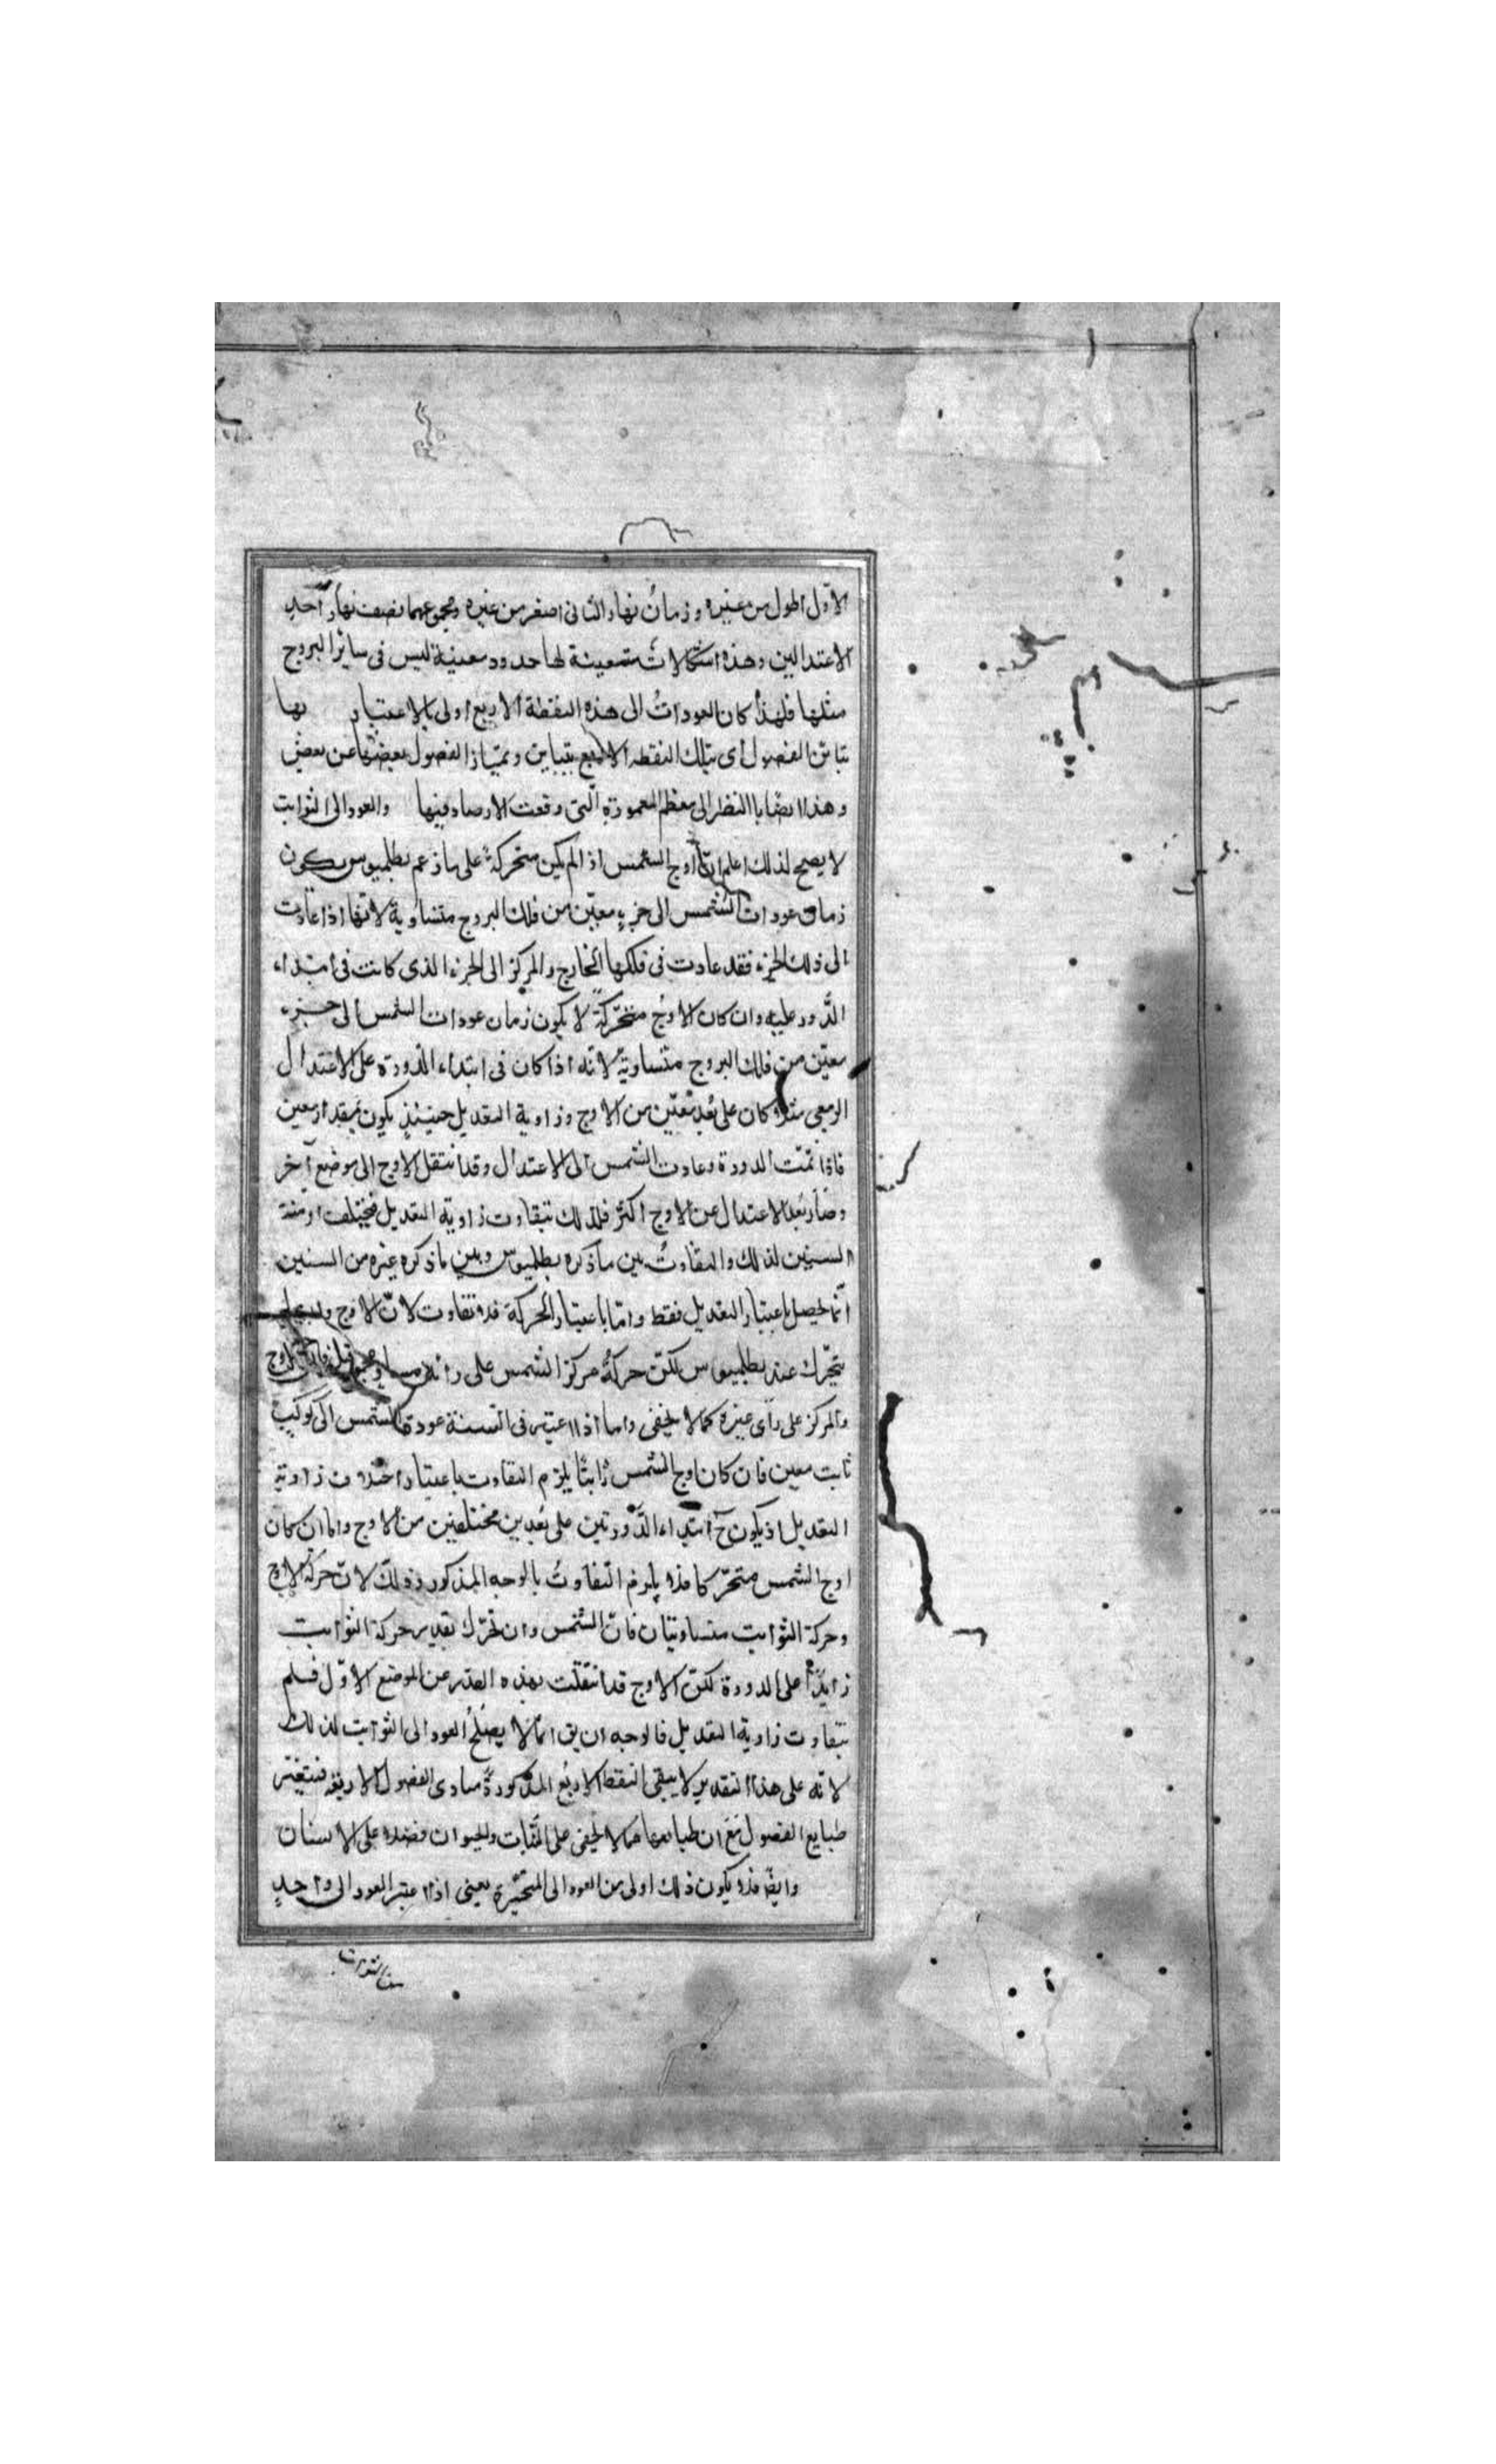 الاوّل اطول من غيره وزمانُ نهار الثانى اصغر من غيره ومجموعهما نصف نهار احدِ
الاعتدالين وهذه اشكالاتٌ متعينة لها حدود معينة ليس فى سائر البروج
مثلها فلهذا كان العوداتُ الى هذه النقطة الاربع اولى بالاعتبار بها
تباين الفصول اى بتلك النقطه الاربع يتباين ويمتياز الفصول بعضها عن بعض
وهذا ايضًا بالنظر الى معظم المعمورة الّتى وقعت الارصاد فيها والعود الى الثوابت
لا يصحّ لذلك اعلم انّ اوج الشمس اذا لم يكن متحركةً على ما زعم بطلميوس يكون
زمان عودات الشمس الى جزءٍ معيّن من فلك البروج متساويةً لانّها اذا عادت
الى ذلك الجزء فقد عادت فى فلكها الخارج والمركز الى الجزء الذى كانت فى ابتداء
الدَّور عليه وان كان الاوجُ متحرّكةً لا يكون زمان عودات الشمس الى جزء
معيّن من فلك البروج متساويةً لانّه اذا كان فى ابتداء الدورة على الاعتدال
الربيعى مثلا كان على بُعدٍ معيّن من الاوج وزاوية التعديل حينئذٍ يكون بمقدار معين
فاذا تمّت الدورة وعادت الشمس الى الاعتدال وقد انتقل الاوج الى موضع آخر
وصار بُعد الاعتدال عن الاوج اكثر فلذلك تتفاوت زاوية التعديل فيختلف ازمنة
السنين لذلك والتفاوتُ بين ما ذكره بطلميوس وبين ما ذكره غيره من السنين
انّما يحصل باعتبار التعديل فقط وامّا باعتبار الحركة فلا تفاوت لانّ الاوج وان لم
يتحرّك عند بطلميوس لكنّ حركةُ مركز الشمس على رأيه مساوٍ لمجموع حركتى الاوج
والمركز على رأى غيره كما لا يخفى واما اذا اعتبر فى السنة عودة الشمس الى كوكبٍ
ثابت معين فان كان اوج الشمس ثابتًا يلزم التفاوت باعتبار اختلاف زاوية
التعديل اذ يكون حَ ابتداء الدَّورتين على بُعدين مختلفين من الاوج واما ان كان
اوج الشمس متحرّكا فلا يلزم التفاوتُ بالوجه المذكور وذلك لانّ حركة الاوج
وحركة الثوابت متساويتان فانّ الشمس وان تحرّك بقدر حركة الثوابت
زايدًا على الدورة لكنّ الاوج قد انتقلت بهذه القدر عن الموضع الاوّل فلم
تتفاوت زاوية التعديل فالوجه ان يق انّما لا يصلحُ العود الى الثوابت لذلك
لانّه على هذا التقدير لا يبقى النقط الاربُع المذكورةُ مبادى الفصول الاربعة فيتغير
طبايع الفصول مَعَ ان طبايعها مما لا يخفى على النّبات والحيوان فضلا على الانسان
وايضًا فلا يكون ذلك اولى من العود الى المتحيّرة يعنى اذا اعتبر العود الى واحدٍ